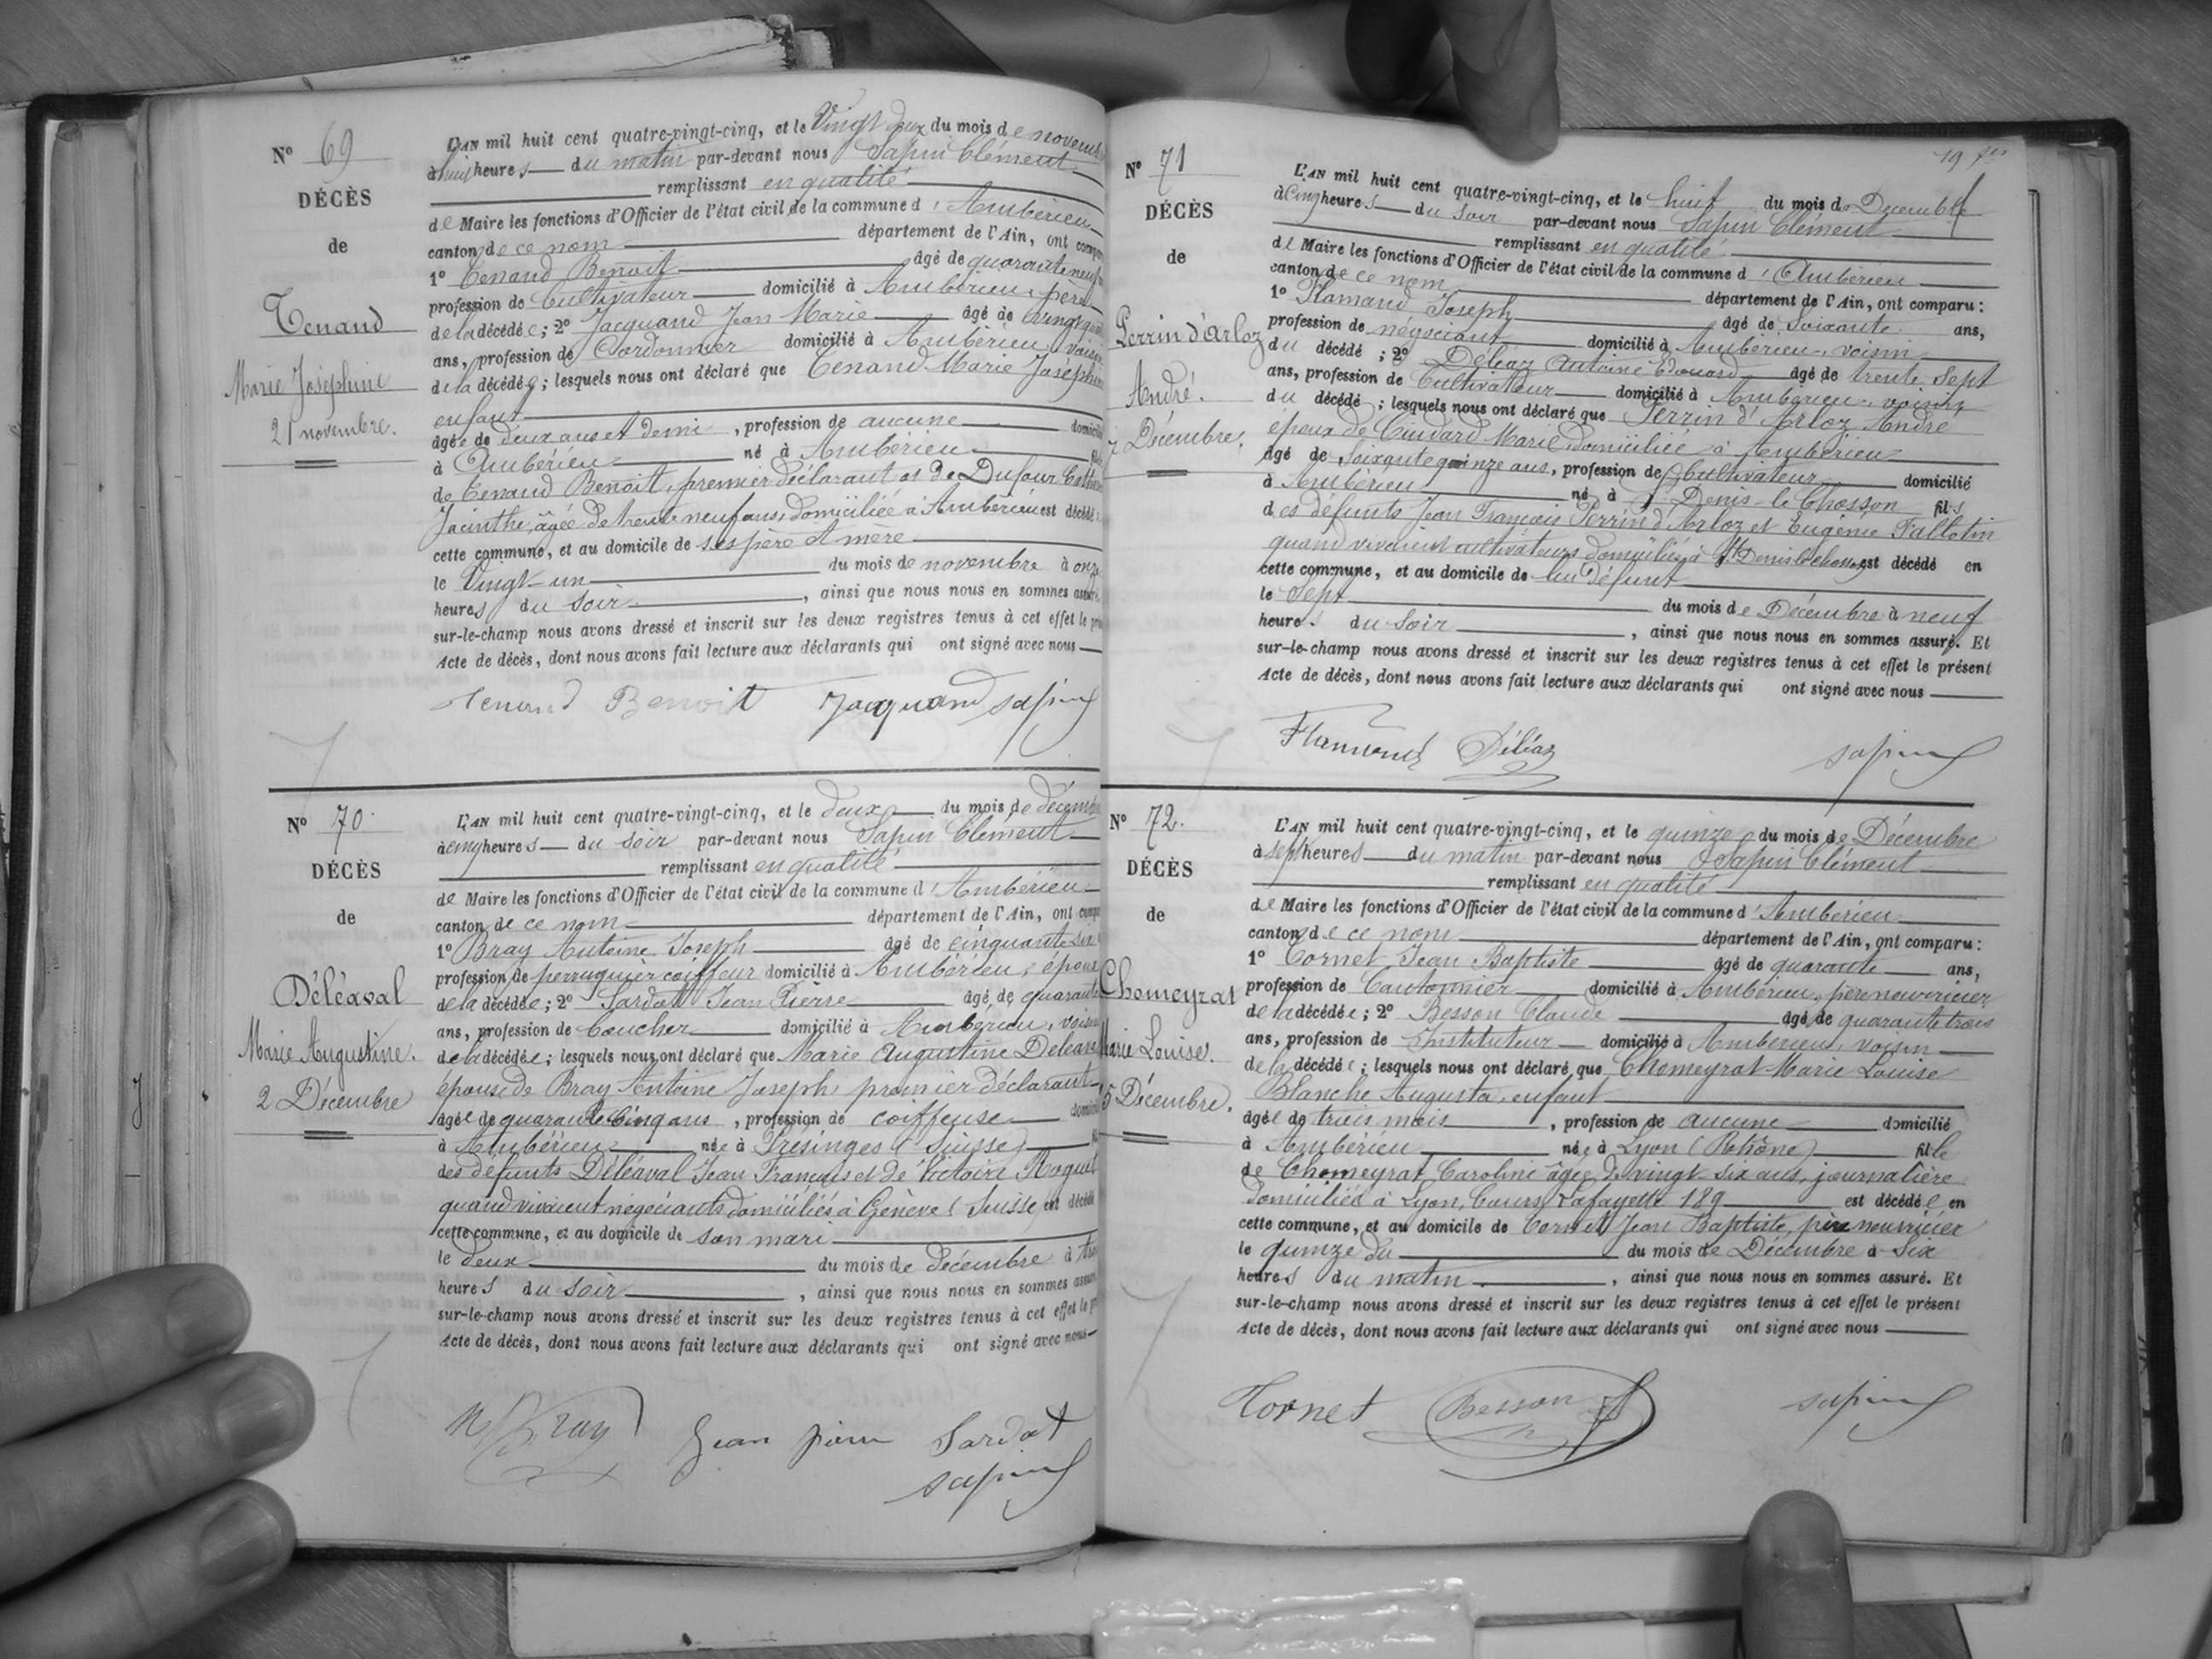 Nº 69
DÉCÈS
de
Tenand
Marie Joséphine
21 novembre.
L'AN mil huit cent quatre-vingt-cinq, et le Vingt deux du mois de novemb
à heures du matin par-devant nous Sapin Clément
remplissant en qualité
de Maire les fonctions d'Officier de l'état civil de la commune d'Ambérieu
canton de ce nom département de l'Ain, ont comp
1º Tenand Benoit âgé de quarante neuf
profession de Cultivateur domicilié à Ambérieu, père
de la décédée; 2º Jacquand Jean Marie âgé de vingt
ans, profession de Cordonnier domicilié à Ambérieu, voisin
de la décédée; lesquels nous ont déclaré que Tenand Marie Joséphine
enfant
âgée de deux ans et demi, profession de aucune domicilié
à Ambérieu né à Ambérieu
de Tenand Benoit, premier déclarant et de Dufour
Jacinthe, âgée de trente neuf ans, domiciliée à Ambérieu est décédé
cette commune, et au domicile de ses père et mère
le Vingt-un du mois de novembre à onze
heures du soir, ainsi que nous nous en sommes assuré.
sur-le-champ nous avons dressé et inscrit sur les deux registres tenus à cet effet le
Acte de décès, dont nous avons fait lecture aux déclarants qui ont signé avec nous
Tenand Benoit Jacquand Sapin
Nº 70
DÉCÈS
de
Déléaval
Marie Augustine.
2 Décembre
L'AN mil huit cent quatre-vingt-cinq, et le deux du mois de décemb
à cinq heures du soir par-devant nous Sapin Clément
remplissant en qualité
de Maire les fonctions d'Officier de l'état civil de la commune d'Ambérieu
canton de ce nom département de l'Ain, ont comp
1º Bray Antoine Joseph âgé de cinquante six
profession de perruquier coiffeur domicilié à Ambérieu, époux
de la décédée; 2º Sardat Jean Pierre âgé de quarante
ans, profession de boucher domicilié à Ambérieu, voisin
de la décédée; lesquels nous ont déclaré que Marie Augustine Déléaval
épouse de Bray Antoine Joseph premier déclarant
âgée de quarante cinq ans, profession de coiffeuse domicilié
à Ambérieu née à Présinges (Suisse)
des défunts Déléaval Jean François et de Victoire Roquet
quand vivaient négociants domiciliés à Genève (Suisse, est décédé
cette commune, et au domicile de son mari
le deux du mois de décembre à
heures du soir, ainsi que nous nous en sommes assuré
sur-le-champ nous avons dressé et inscrit sur les deux registres tenus à cet effet le
Acte de décès, dont nous avons fait lecture aux déclarants qui ont signé avec nous
Bray Jean pierre Sardat
Sapin
19
Nº 71
DÉCÈS
de
Perrin d'Arloz
André.
7 Décembre.
L'AN mil huit cent quatre-vingt-cinq, et le huit du mois de Décembre
à cinq heures du soir par-devant nous Sapin Clément
remplissant en qualité
de Maire les fonctions d'Officier de l'état civil de la commune d'Ambérieu
canton de ce nom département de l'Ain, ont comparu:
1º Flamand Joseph âgé de Soixante ans,
profession de négociant domicilié à Ambérieu, voisin
du décédé; 2º Déléaz Antoine Edouard âgé de trente sept
ans, profession de Cultivateur domicilié à Ambérieu, voisin
du décédé; lesquels nous ont déclaré que Perrin d'Arloz André
époux de Cindard Marie domiciliée à Ambérieu
âgé de soixante quinze ans, profession de Cultivateur domicilié
à Ambérieu né à St Denis-le Chosson fils
des défunts Jean François Perrin d'Arloz et Eugénie Tallotin
quand vivaient cultivateurs domiciliés à St Denis le Chosson est décédé en
cette commune, et au domicile de lui défunt
le Sept du mois de Décembre à neuf
heures du soir, ainsi que nous nous en sommes assuré. Et
sur-le-champ nous avons dressé et inscrit sur les deux registres tenus à cet effet le présent
Acte de décès, dont nous avons fait lecture aux déclarants qui ont signé avec nous
Flamand Déléaz Sapin
Nº 72.
DÉCÈS
de
Chomeyrat
Marie Louise.
15 Décembre.
L'AN mil huit cent quatre-vingt-cinq, et le quinze du mois de Décembre
à sept heures du matin par-devant nous Sapin Clément
remplissant en qualité
de Maire les fonctions d'Officier de l'état civil de la commune d'Ambérieu
canton de ce nom département de l'Ain, ont comparu:
1º Cornet Jean Baptiste âgé de quarante ans,
profession de Cantonnier domicilié à Ambérieu, père nourricier
de la décédée; 2º Besson Claude âgé de quarante trois
ans, profession de Instituteur domicilié à Ambérieu, voisin
de la décédée; lesquels nous ont déclaré que Chomeyrat Marie Louise
Blanche Augusta, enfant
âgée de trois mois, profession de aucune domicilié
à Ambérieu née à Lyon (Rhône) fille
de Chomeyrat Caroline âgée de vingt-six ans, journalière
domiciliée à Lyon, Cours Lafayette 189 est décédée en
cette commune, et au domicile de Cornet Jean Baptiste, père nourricier
le quinze du du mois de Décembre à six
heures du matin, ainsi que nous nous en sommes assuré. Et
sur-le-champ nous avons dressé et inscrit sur les deux registres tenus à cet effet le présent
Acte de décès, dont nous avons fait lecture aux déclarants qui ont signé avec nous
Cornet Besson Sapin